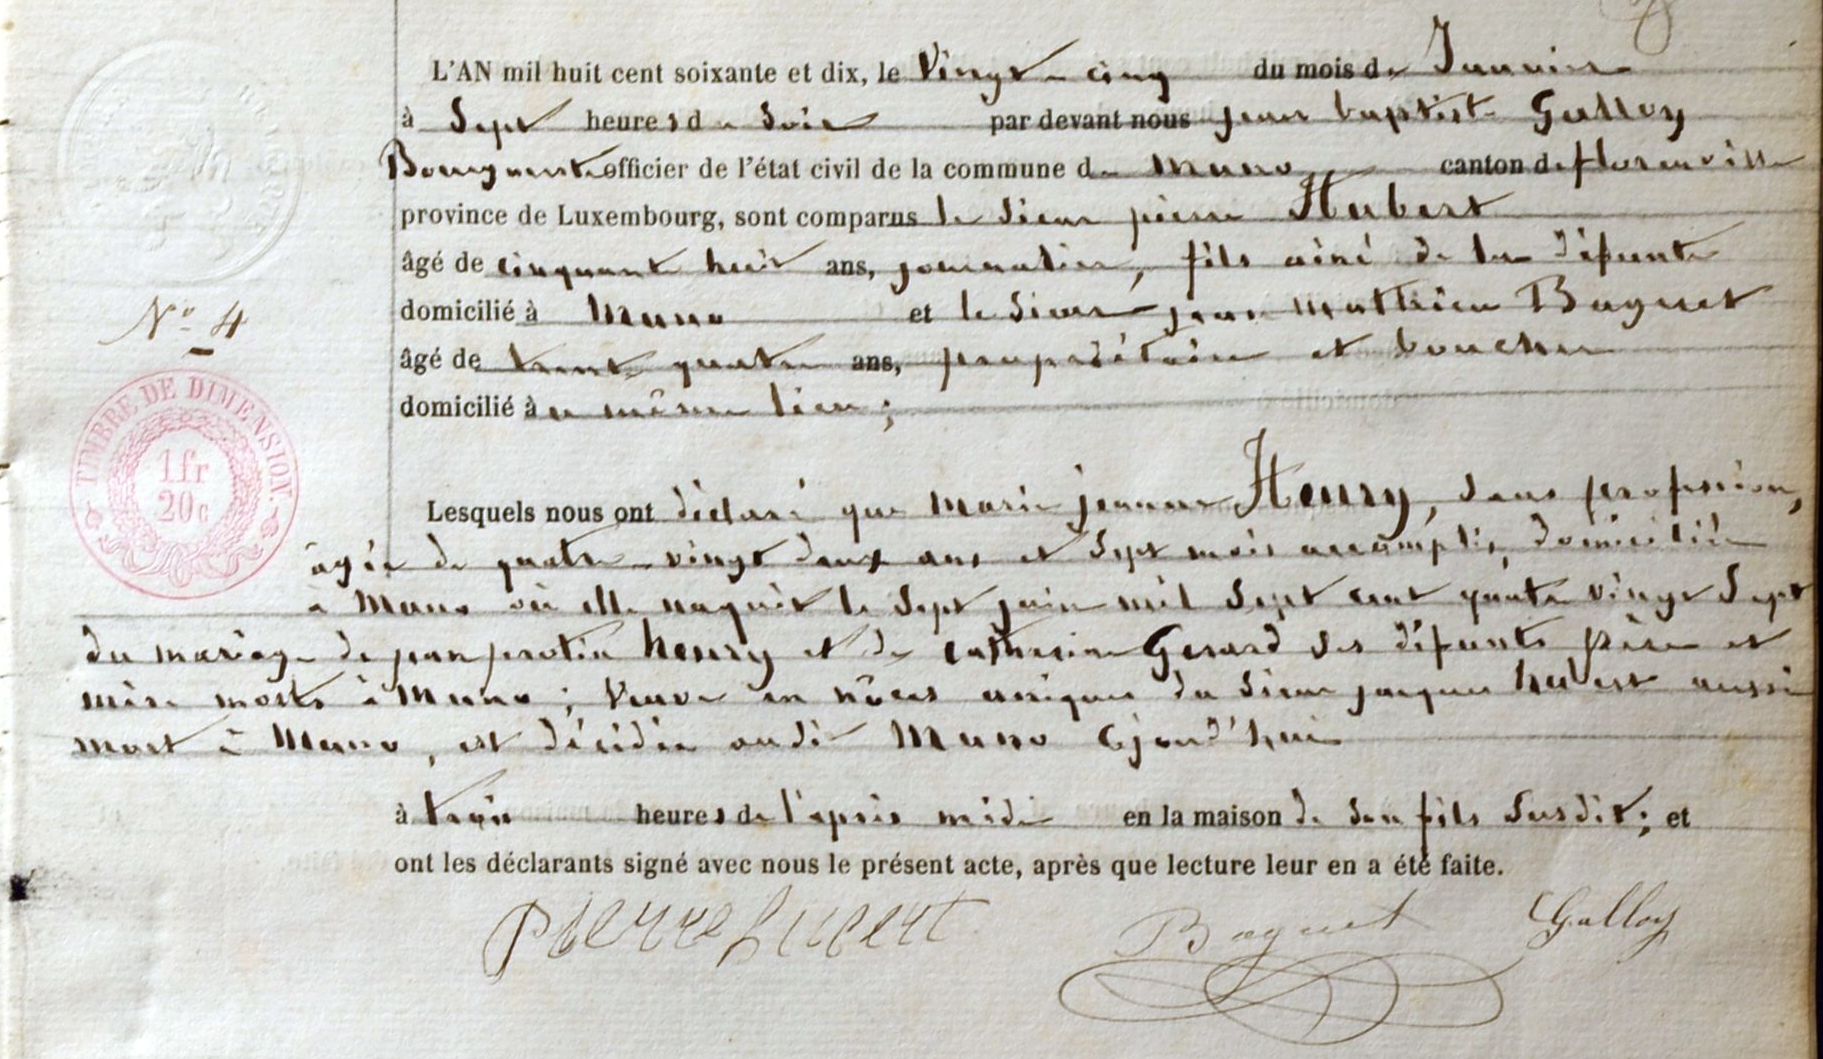 L'AN mil huit cent soixante et dix, le Vingt-cinq du mois de Janvier
à Sept heures du Soir par devant nous jean baptiste Galloy
Bourgmestre officier de l'état civil de la commune de Muno canton de florenville
province de Luxembourg, sont comparus le Sieur pierre Hubert
âgé de cinquante huit ans, journalier, fils ainé de la défunte
domicilié à Muno et le Sieur jean Mathieu Baguet
N° 4
âgé de trente quatre ans, propriétaire et boucher
domicilié au même lieu;
TIMBRE DE DIMENSION.
1fr
20c
Lesquels nous ont déclaré que Marie jeanne Henry, sans profession,
âgée de quatre-vingt deux ans et sept mois accomplis, domiciliée
à Muno où elle naquit le Sept juin mil Sept cent quatre vingt Sept
du mariage de jean henry et de catherine Gerard ses défunts père et
mère morts à Muno; Veuve en nôces uniques du Sieur jacques hubert aussi
mort à Muno, est décédée audit Muno cejourd'hui
à trois heures de l'après midi en la maison de son fils susdit; et
ont les déclarants signé avec nous le présent acte, après que lecture leur en a été faite.
Pierre hubert Baguet Galloy